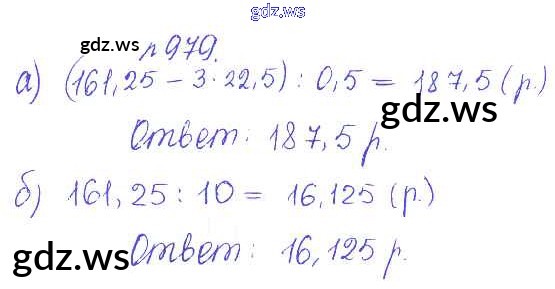 gdz.ws
gdz.ws
№ 979.
а) (161,25 - 3·22,5) : 0,5 = 187,5 (р.)
gdz.ws
Ответ: 187,5 р.
б) 161,25 : 10 = 16,125 (р.)
gdz.ws
Ответ: 16,125 р.